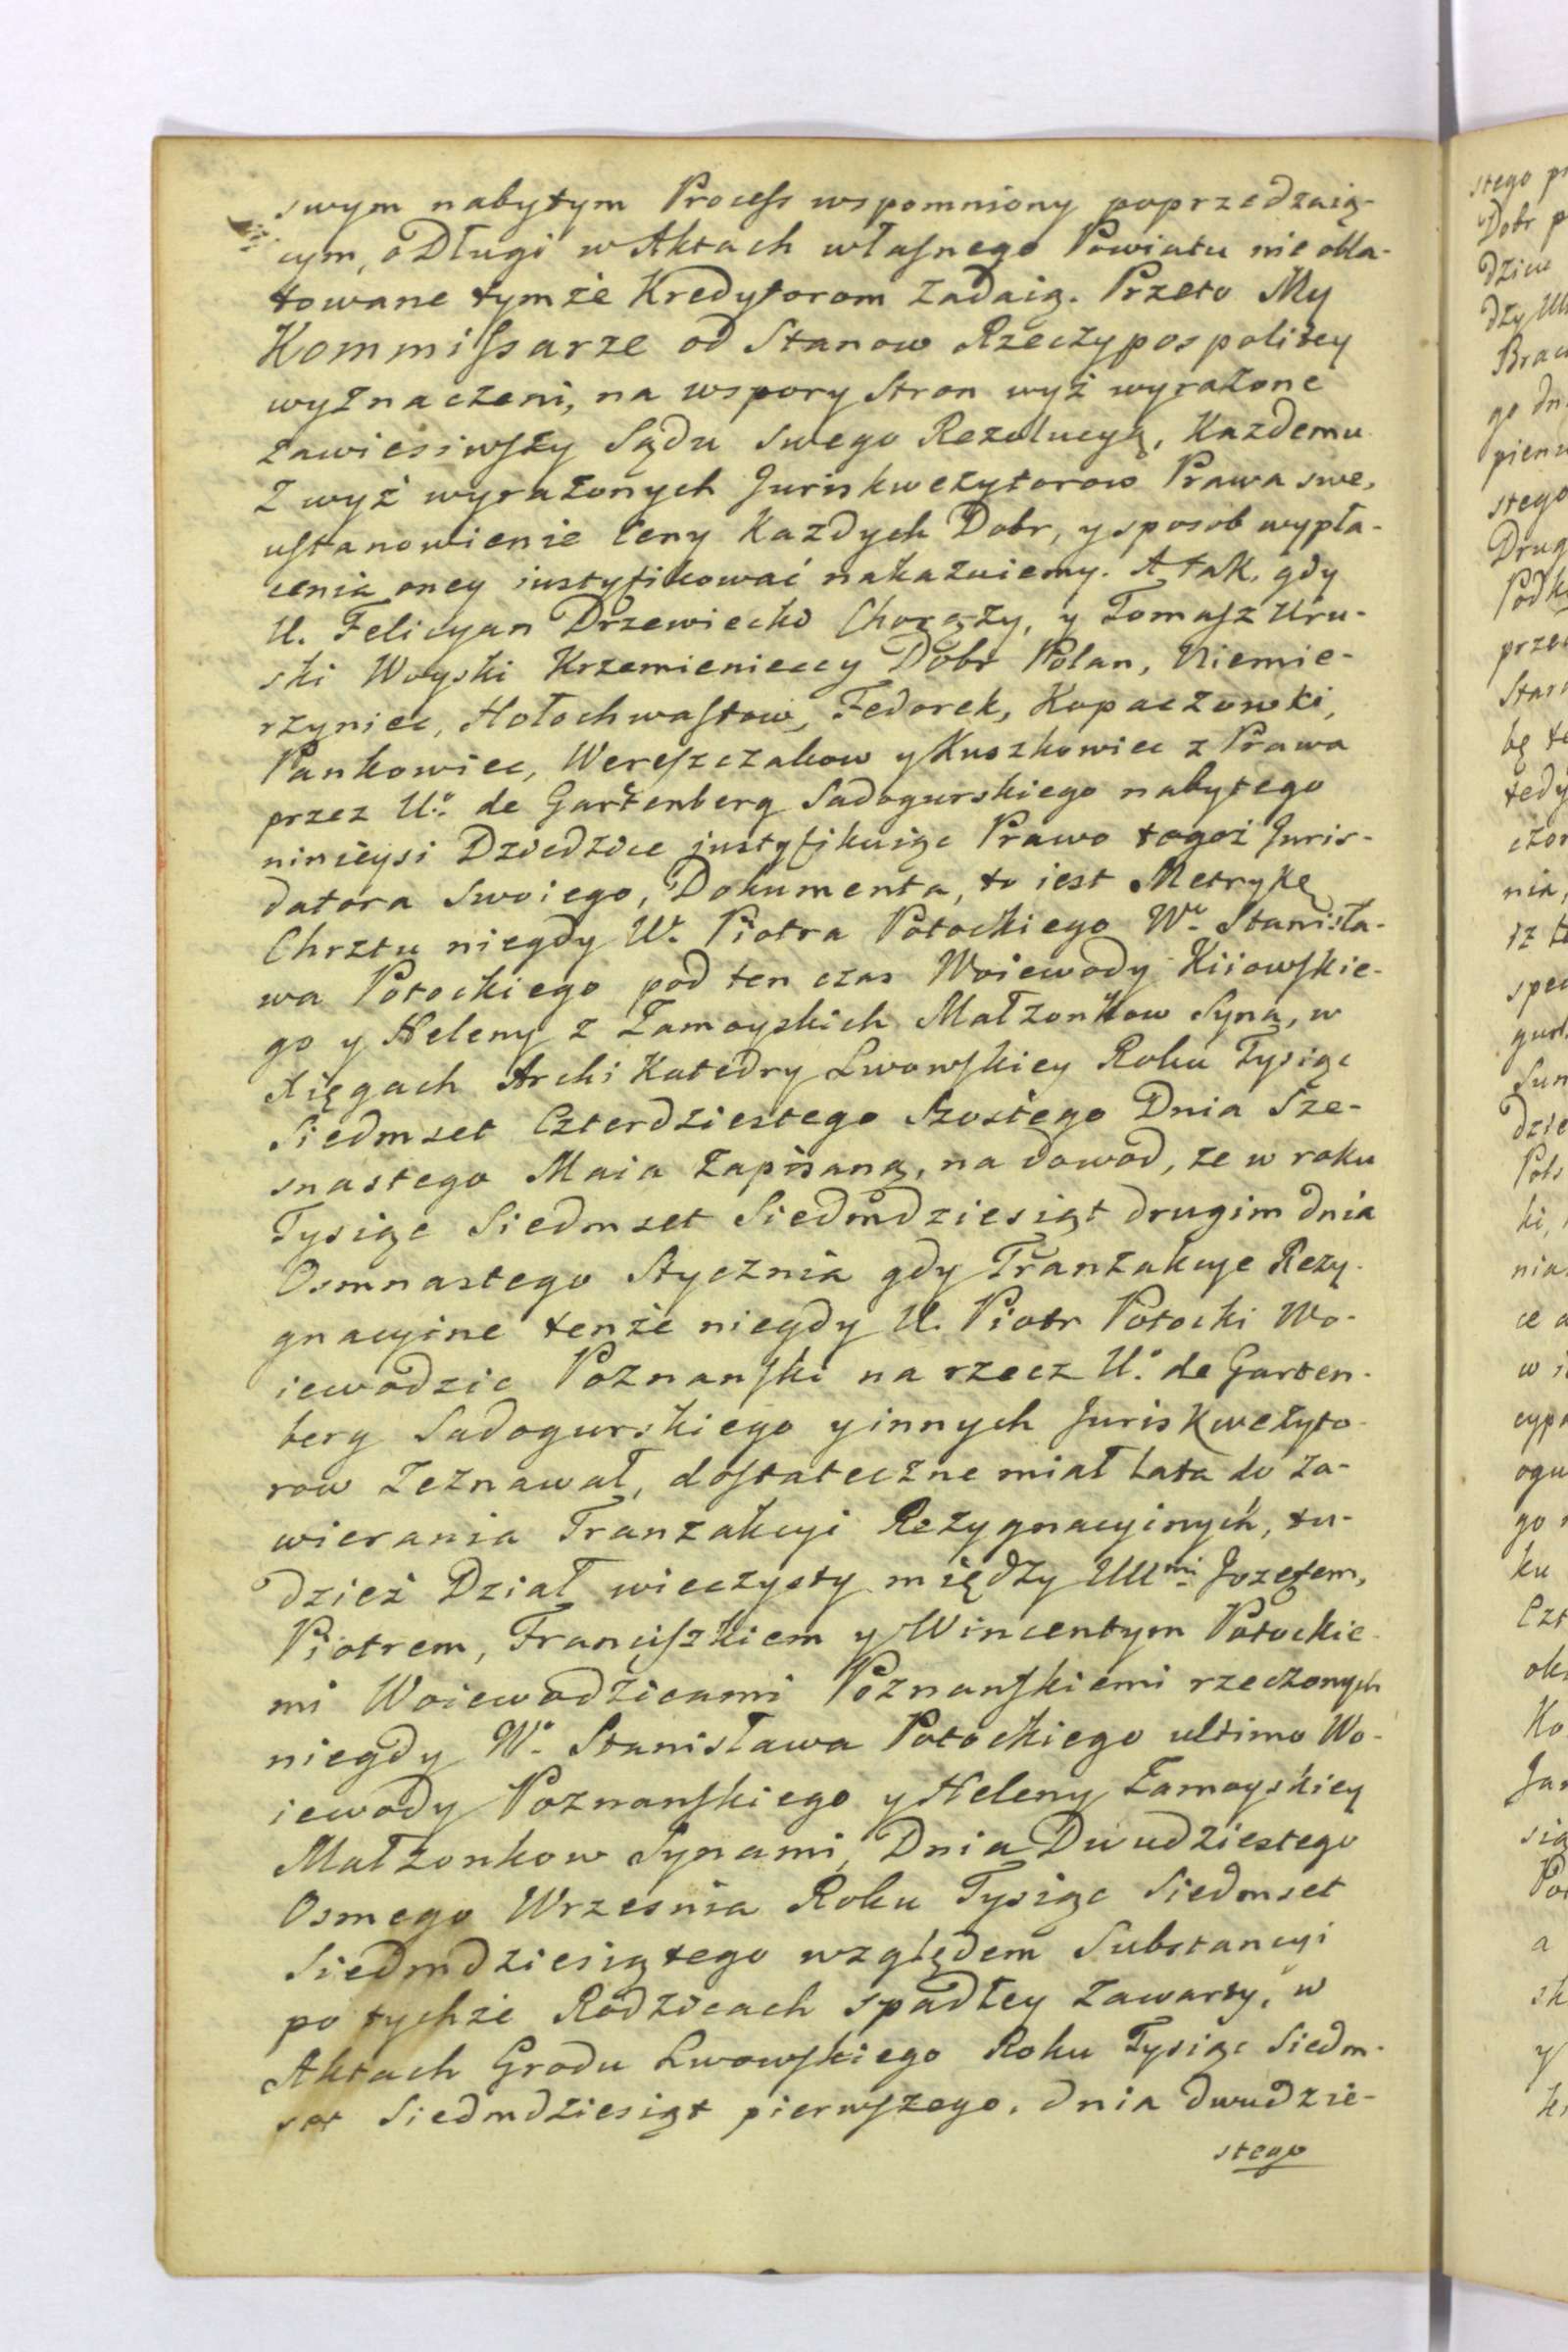 swym nabytym Process wspomniony poprzedzaią-
cym, o Długi w Aktach własnego Powiatu nie obla-
towane tymże Kredytorom zadaią. Przeto My
Kommissarze od Stanow Rzeczypospolitey
wyznaczeni, na wspory Stron wyż wyrażone
zawiesiwszy Sądu swego Rezolucyą, Każdemu
z wyż wyrażonych Juriskwezytorow Prawa swe,
ustanowienie Ceny Każdych Dobr, y sposob wypła-
cenia oney iustyfikować nakazuiemy. A tak, gdy
U. Felicyan Drzewiecki Chorąży, y Tomasz Uru-
ski Woyski Krzemienieccy Dobr Polan, Niemie-
rzyniec, Hołochwastow, Fedorek, Kopaczowki,
Pankowiec, Wereszczakow y Kuszkowiec z Prawa
przez U.º de Gartenberg Sadogurskiego nabytego
ninieysi Dziedzice justyfikuiąc Prawo tegoż Juris-
datora Swoiego, Dokumenta, to iest Metrykę
Chrztu niegdy U. Piotra Potockiego Wº Stanisła-
wa Potockiego pod ten czas Woiewody Kiiowskie-
go y Heleny z Zamoyskich Małżonkow Syna, w
Xięgach Archi Katedry Lwowskiey Roku Tysiąc
Siedmset Czterdziestego Szostego Dnia Sze-
snastego Maia Zapisaną, na dowod, ze w roku
Tysiąc Siedmset Siedmdziesiąt drugim dnia
Osmnastego Stycznia gdy Tranzakcye Rezy-
gnacyine tenże niegdy U. Piotr Potocki Wo-
iewodzic Poznanski na rzecz U.º de Garten-
berg Sadogurskiego y innych Juriskwezyto-
row Zeznawał, dostateczne miał Lata do za-
wierania Tranzakcyi Rezygnacyinych, tu-
dzież Dział wieczysty między UU.mi Jozefem,
Piotrem, Franciszkiem y Wincentym Potockie-
mi Woiewodzicami Poznanskiemi rzeczonych
niegdy Wº Stanisława Potockiego ultimo Wo-
iewody Poznanskiego y Heleny Zamoyskiey
Małżonkow Synami, Dnia Dwudziestego
Osmego Wrzesnia Roku Tysiąc Siedmset
Siedmdziesiątego względem Substancyi
po tychże Rodzicach spadłey zawarty, w
Aktach Grodu Lwowskiego Roku Tysiąc Siedm-
set Siedmdziesiąt pierwszego, dnia dwudzie-
stego